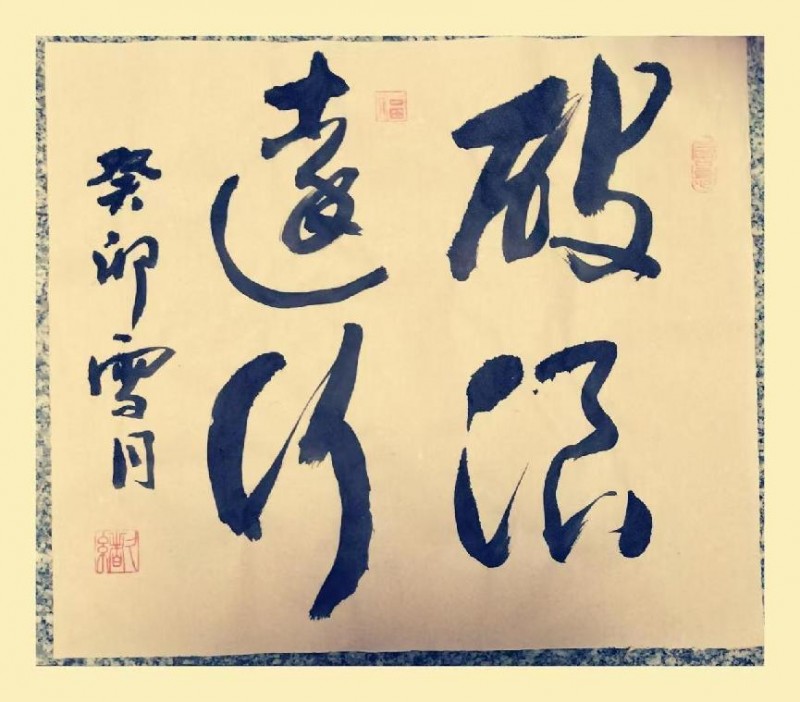 破浪
遠行
癸卯雪月